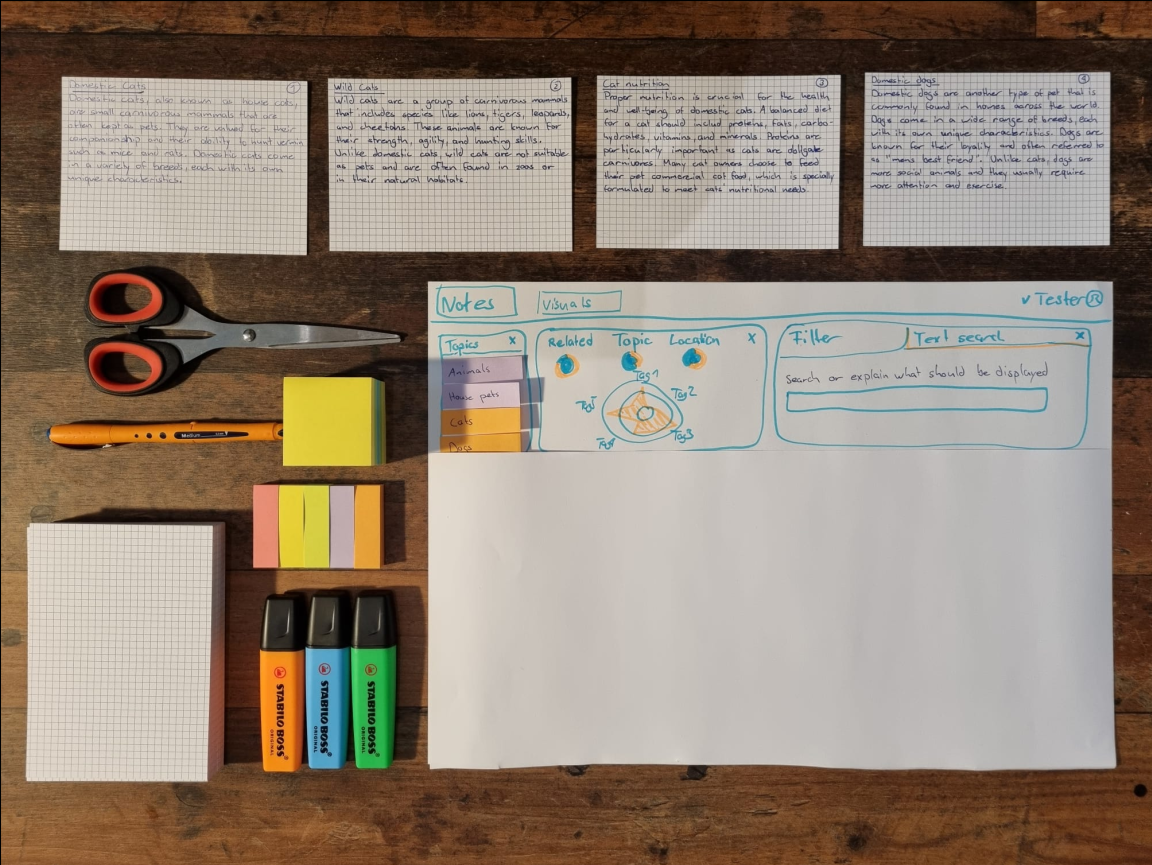 Domestic Cats
1
Domestic cats, also known as house cats,
are small carnivorous mammals that are
often kept as pets. They are valued for their
companionship and their ability to hunt vermin
such as mice and rats. Domestic cats come
in a variety of breeds, each with its own
unique characteristics.
Wild Cats
2
Wild cats are a group of carnivorous mammals
that includes species like lions, tigers, leopards,
and cheetahs. These animals are known for
their strength, agility, and hunting skills.
Unlike domestic cats, wild cats are not suitable
as pets and are often found in zoos or
in their natural habitats.
Cat nutrition
3
Proper nutrition is crucial for the health
and well-being of domestic cats. A balanced diet
for a cat should includ proteins, fats, carbo-
hydrates, vitamins, and minerals. Proteins are
particularly important as cats are obligate
carnivores. Many cat owners choose to feed
their pet commercial cat food, which is specially
formulated to meet cats' nutritional needs.
Domestic dogs
4
Domestic dogs are another type of pet that is
commonly found in homes across the world.
Dogs come in a wide range of breeds, each
with its own unique characteristics. Dogs are
known for their loyalty and often referred to
as "mans best friend". Unlike cats, dogs are
more social animals and they usually require
more attention and exercise.
Notes
Visuals
v Tester R
Topics x
Animals
House pets
Cats
Dogs
Related Topic Location x
Tag 1
Tag 2
Tag 3
Tag 4
Tag 5
Filter
Text search x
Search or explain what should be displayed
STABILO BOSS
ORIGINAL
STABILO BOSS
ORIGINAL
STABILO BOSS
ORIGINAL